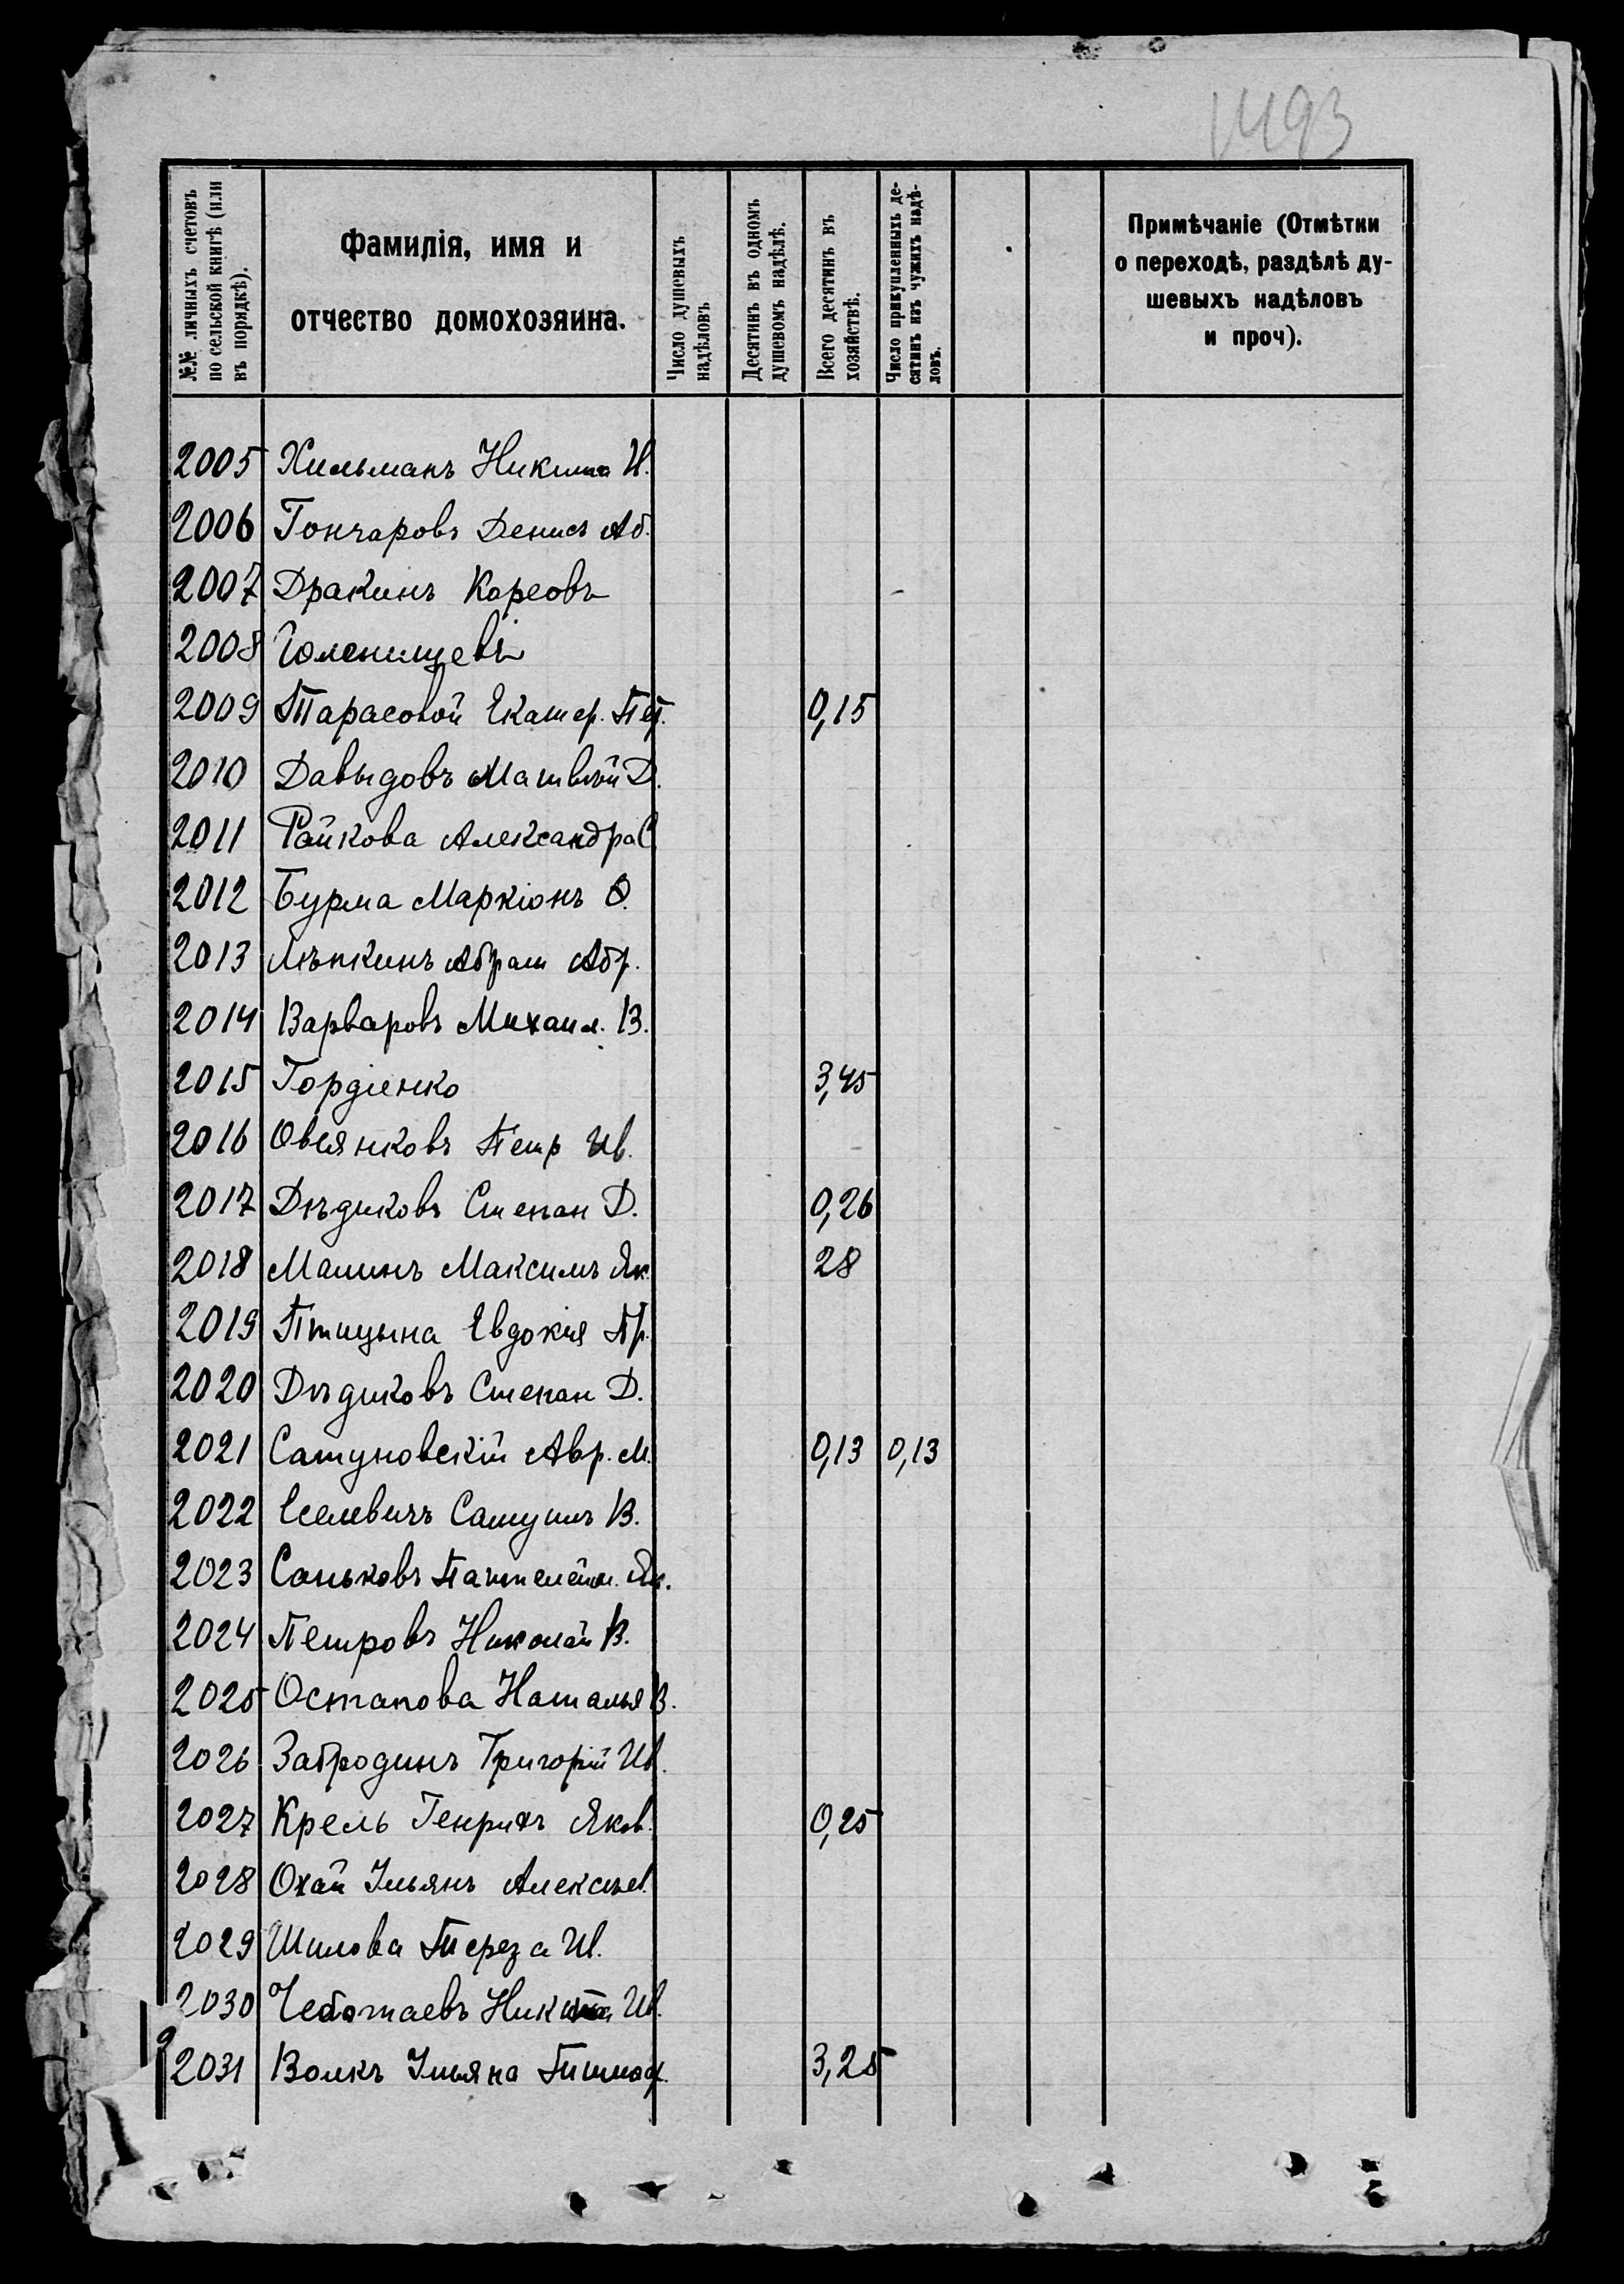 1493
№№ личныхъ счетовъ
по сельской книгѣ (или
въ порядкѣ).
Фамилія, имя и
отчество домохозяина.
Число душевыхъ
надѣловъ
Десятинъ въ одномъ
душевомъ надѣлѣ.
Всего десятинъ въ
хозяйствѣ.
Число прикупленныхъ де-
сятинъ изъ чужихъ надѣ-
ловъ.
Примѣчаніе (Отмѣтки
о переходѣ, раздѣлѣ ду-
шевыхъ надѣловъ
и проч).
2005 Хильманъ Никита И.
2006 Гончаровъ Денисъ Аб.
2007 Дракинъ
2008 Голенищевъ
2009 Тарасовой Екатер. Пет. 0,15
2010 Давыдовъ Матвѣй Д.
2011 Райкова Александра С
2012 Бурма Маркіонъ Ѳ.
2013 Лѣпкинъ Абрам Абр.
2014 Варваровъ Михаил. В.
2015 Гордіенко 3,45
2016 Овсянковъ Петр Ив.
2017 Дѣдиковъ Степан Д. 0,26
2018 Малинъ Максимъ Як. 28
2019 Птицына Евдокія Пр.
2020 Дѣдиковъ Степан Д.
2021 Сатуновскій Авр. М. 0,13 0,13
2022 В.
2023 Саньковъ Пантелейм. Як.
2024 Петровъ Николай В.
2025 Остапова Наталья В.
2026 Забродинъ Григорій Ив.
2027 Крель Генрихъ Яков. 0,25
2028 Охай Ульянъ Алексѣев.
2029 Шилова Тереза Ив.
2030 Чеботаевъ Никита Ив.
2031 Волкъ Ульяна Тимоф. 3,25